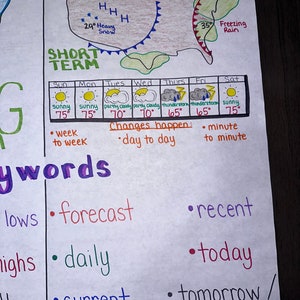 H H H
29° Heavy Snow
35° Freezing Rain
SHORT TERM
Sun Mon Tues Wed Thurs Fri Sat
sunny sunny partly cloudy partly cloudy thunderstorm thunderstorm sunny
75° 75° 70° 70° 65° 65° 75°
Changes happen:
• week to week
• day to day
• minute to minute
G
ywords
lows • forecast • recent
highs • daily • today
• current • tomorrow /